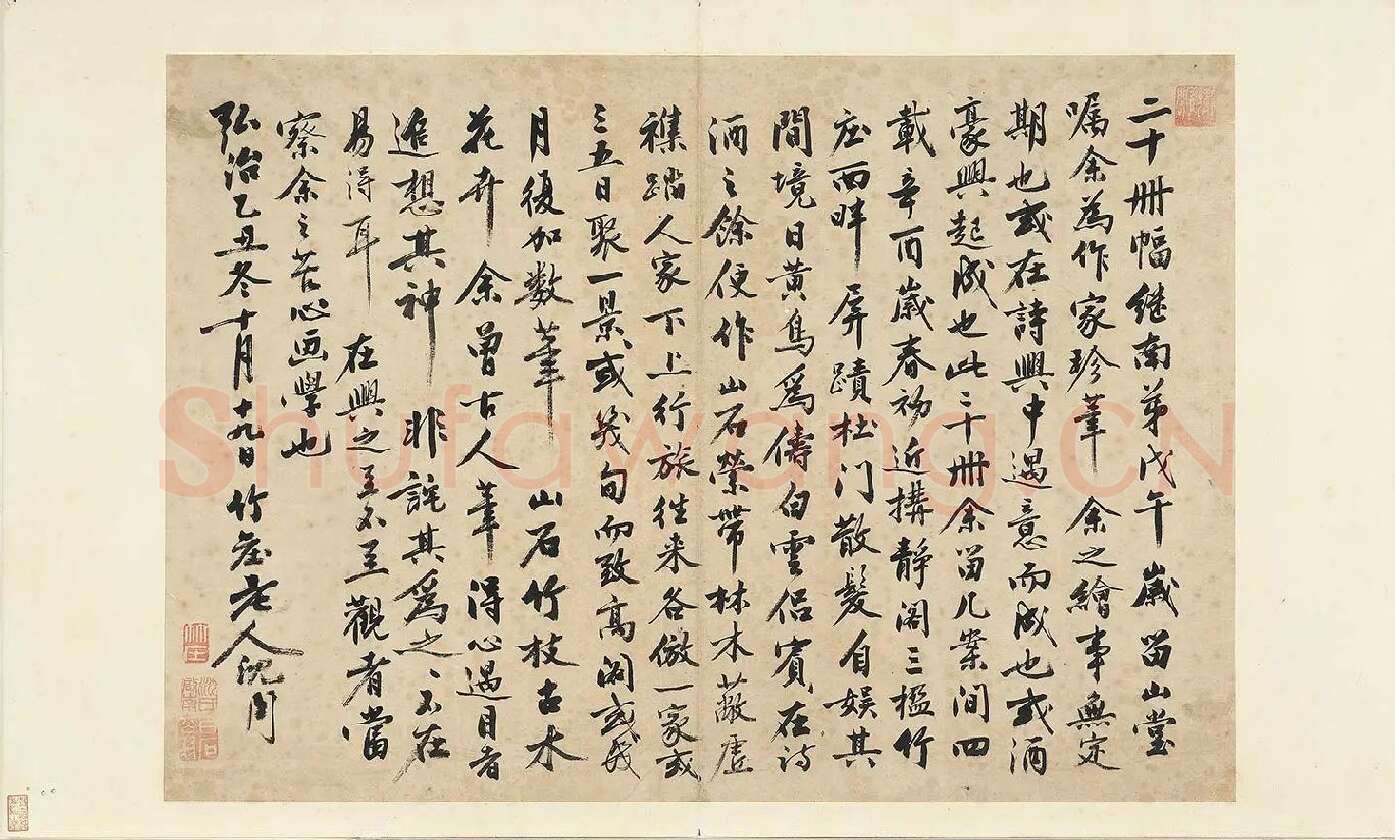 二十冊幅继南弟戊午歲留山堂
嘱余為作家珍筆余之繪事無定
期也或在詩興中遇意而成也或酒
豪興起成也此二十冊余留几案间四
載辛酉歲春初近搆靜阁三楹竹
在西畔屏蹟杜门散髮自娱其
間境日黄鳥爲儔白雲侣賓在诗
酒之餘便作山石縈帶林木蔽虗
襍踏人家下上行旅往来各倣一家或
三五日聚一景或幾旬而致高阁或幾
月復加數筆山石竹枝古木
花卉余曽古人筆得心遇目者
追想其神非詫其爲之之不在
易得耳在興之至不至觀者當
察余之苦心画學也
弘治乙丑冬十月十九日竹莊老人沈周
Shufawang.CN